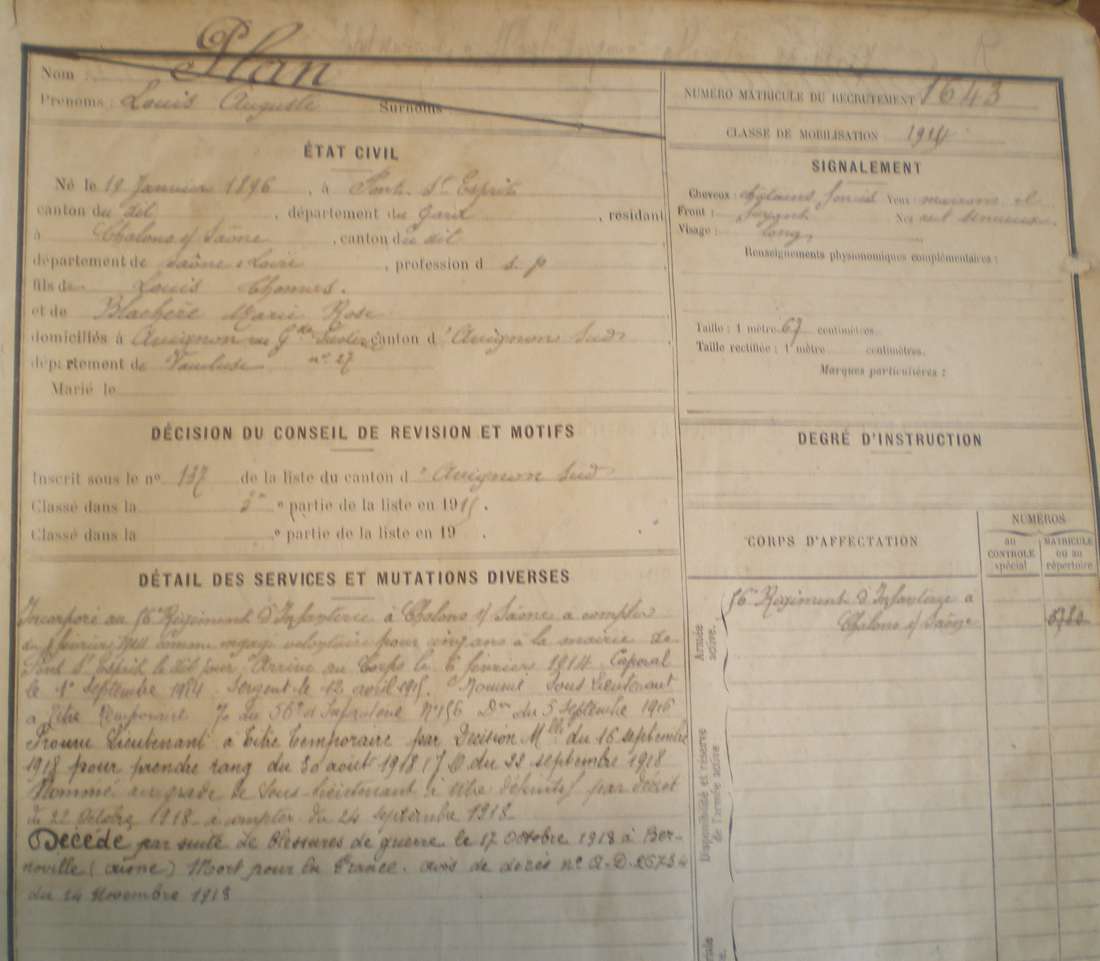 Plan
Nom :
Prénoms : Louis Auguste Surnoms :
NUMÉRO MATRICULE DU RECRUTEMENT 1643
CLASSE DE MOBILISATION 1914
ÉTAT CIVIL
Né le 19 Janvier 1896, à Pont-St-Esprit
canton du dit, département du Gard, résidant
à Chalons s/ Saône, canton du dit
département de Saône & Loire, profession d s. p
fils de Louis Thomas.
et de Blachère Marie Rose
domiciliés à Avignon canton d'Avignon Sud
département de Vaucluse n° 27
Marié le
SIGNALEMENT
Cheveux châtains foncés Yeux marrons
Front : fuyant Nez rect sinueux
Visage : long
Renseignements physionomiques complémentaires :
Taille : 1 mètre 67 centimètres.
Taille rectifiée : 1 mètre centimètres.
Marques particulières :
DÉCISION DU CONSEIL DE REVISION ET MOTIFS
Inscrit sous le n° 137 de la liste du canton d'Avignon Sud
Classé dans la e partie de la liste en 1915.
Classé dans la e partie de la liste en 19 .
DEGRÉ D'INSTRUCTION
DÉTAIL DES SERVICES ET MUTATIONS DIVERSES
Incorporé au 56e Régiment d'Infanterie à Chalons s/ Saône à compter
du février 1914 comme engagé volontaire pour cinq ans à la mairie de
Pont St Esprit le dit jour. Arrivé au Corps le 6 février 1914. Caporal
le 1er Septembre 1914. Sergent le 12 avril 1915. Nommé Sous Lieutenant
à titre temporaire du 56e d'Infanterie N° 156 Don du 5 septembre 1916
Promu Lieutenant à titre temporaire par Décision Mlle du 16 septembre
1918 pour prendre rang du 30 août 1918 J.O. du 22 septembre 1918
Nommé au grade de Sous-Lieutenant à titre définitif par décret
du 22 Octobre 1918 à compter du 24 septembre 1918.
Décédé par suite de blessures de guerre le 17 Octobre 1918 à Ber-
noville (Aisne) Mort pour la France. avis de décès n°
du 24 Novembre 1918
CORPS D'AFFECTATION
NUMÉROS
au CONTROLE spécial
MATRICULE ou au répertoire
Armée active.
56e Régiment d'Infanterie à
Chalons s/ Saône
Disponibilité et réserve de l'armée active